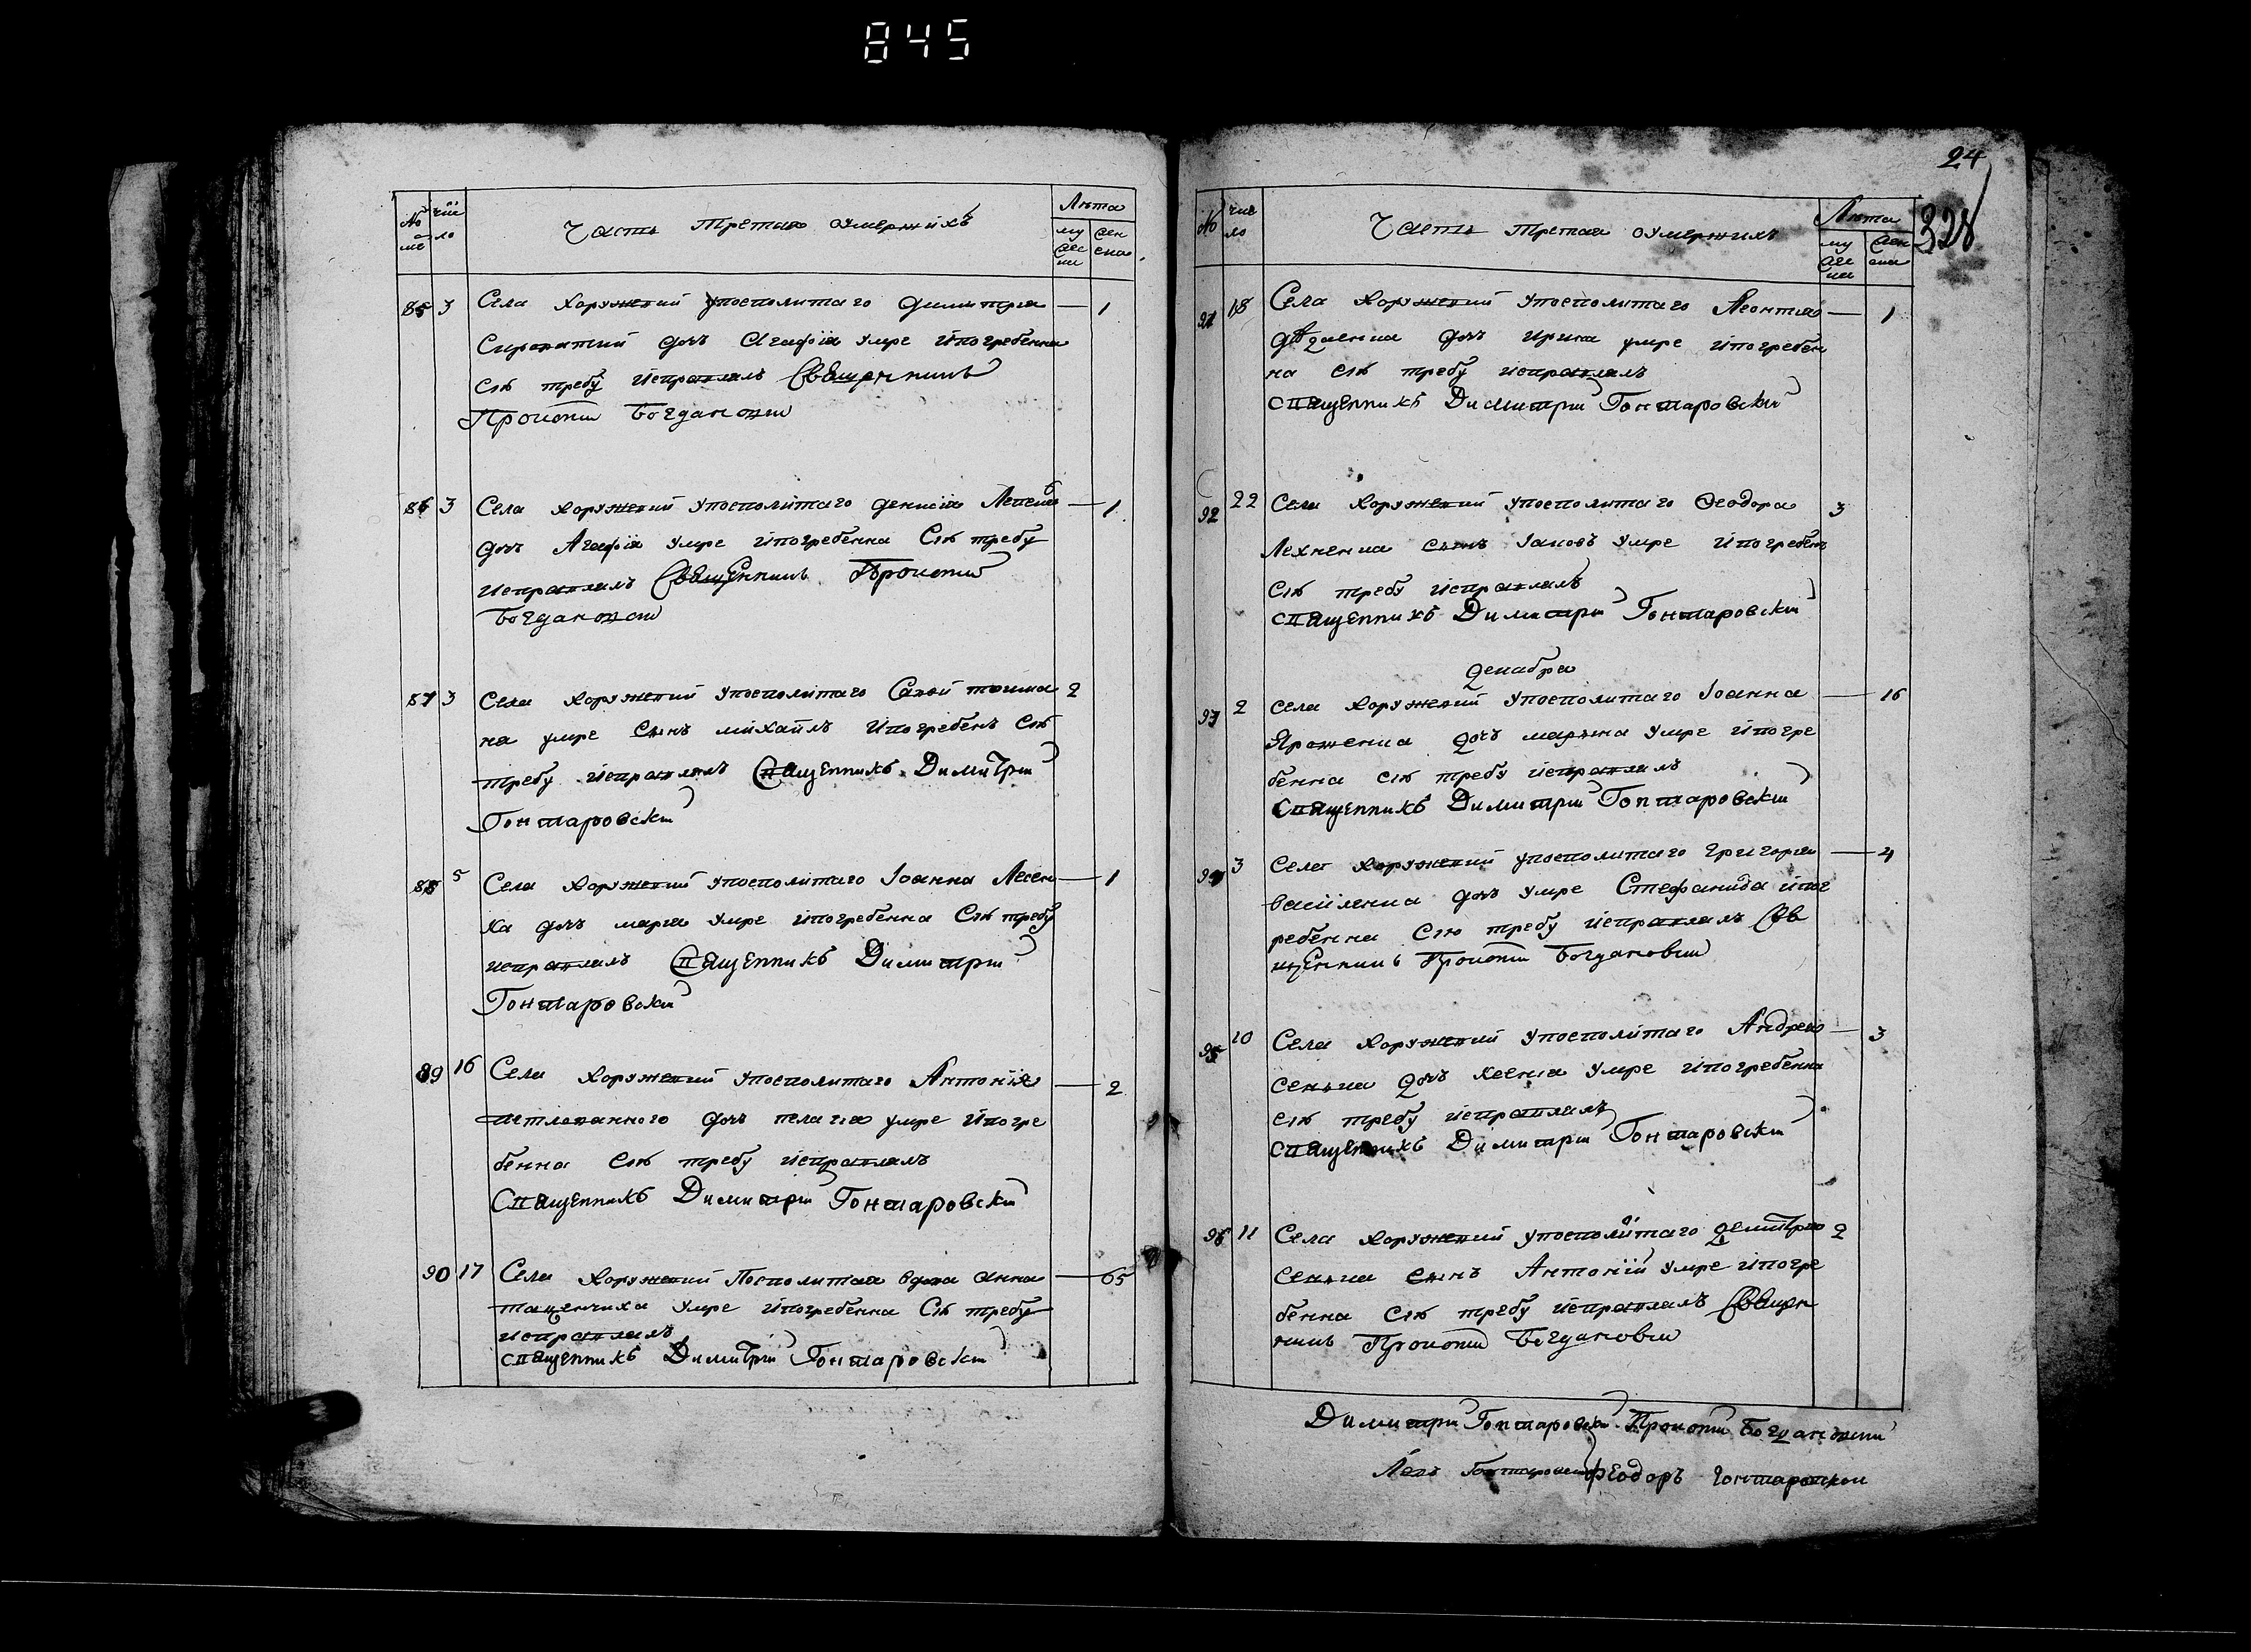 845
№
чис
ло
Часть Третья Оумершихъ
Лѣта
му
жес
ки
жен
ска
85 3 Села Хоружевки упосполитаго Димитрия — 1
дочь Агафiя умре ипогребенна
сію требу исправлялъ Священникъ
Прокопий Богданович
86 3 Села Хоружевки упосполитаго Дениса — 1
дочь Агафiя умре ипогребенна Сію требу
исправлялъ Священникъ Прокопий
Богданович
87 3 Села Хоружевки упосполитаго Савой 2
на умре сынъ михаилъ ипогребенъ Сію
требу исправлялъ Священникъ Димитрий
Гонтаровский
88 5 Села Хоружевки упосполитаго Iоанна Лесен — 1
ка дочь мария умре ипогребенна Сію требу
исправлялъ Священникъ Димитрий
Гонтаровский
89 16 Села Хоружевки упосполитаго Антонiя — 2
дочь пелагiя умре ипогре
бенна Сію требу исправлялъ
Священникъ Димитрий Гонтаровский
90 17 Села Хоружевки Посполитая вдова анна — 65
тащенчиха умре ипогребенна Сію требу
исправлялъ
священникъ Димитрий Гонтаровский
24
328
№
чис
ло
Часть Третая Оумершихъ
Лѣта
му
жес
ки
жен
ска
91 18 Села Хоружевки упосполитаго Леонтия — 1
дочь ирина умре ипогребен
на сію требу исправлялъ
священникъ Димитрий Гонтаровский
92 22 Села Хоружевки упосполитаго Феодора 3
Лехненка сынъ Iаковъ умре ипогребенъ
сію требу исправлялъ
священникъ Димитрий Гонтаровский
Декабря
93 2 Села Хоружевки упосполитаго Iоанна — 16
Ярошенка дочь марина умре ипогре
бенна сію требу исправлялъ
Священникъ Димитрий Гонтаровский
94 3 Села Хоружевки упосполитаго григория — 4
василенка дочь умре Стефанида ипог
ребенна Сію требу исправлялъ Свя
щенникъ Прокопий Богданович
95 10 Села Хоружевки упосполитаго Андрея — 3
сенька дочь ксения умре ипогребенна
сію требу исправлялъ
священникъ Димитрий Гонтаровский
96 11 Села Хоружевки упосполитаго Димитрия 2
сенька сынъ Антонiй умре ипогре
бенна Сію требу исправлялъ Священ
никъ Прокопий Богданович
Димитрий Гонтаровский Прокопий Богданович
Гонтаровский Феодоръ Гонтаровский